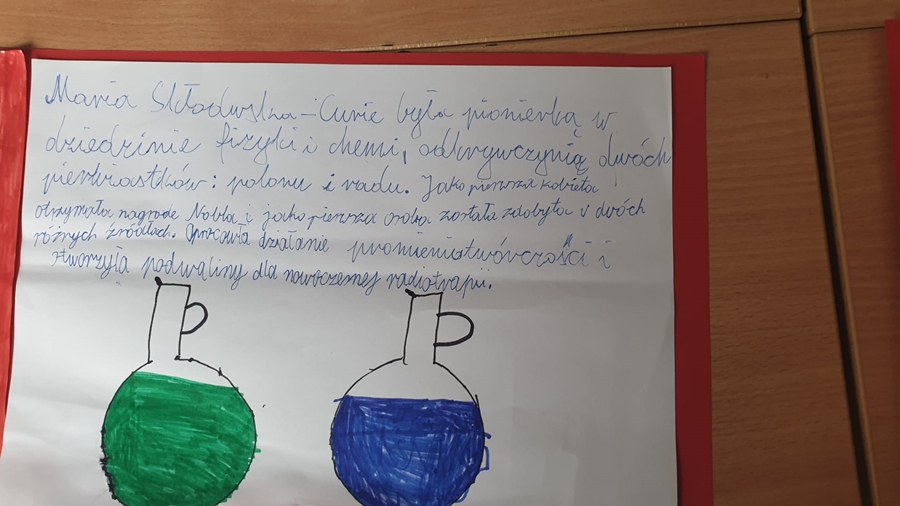 Maria Skłodwska-Curie była pionierką w
dziedzinie fizyki i chemi, odkrywczynią dwóch
pierwiastków: polonu i radu. Jako pierwsza kobieta
otrzymała nagrode Nobla i jako pierwsza osoba została zdobyła w dwóch
różnych źródłach. Opracowła działanie promieniotwórczości i
stworzyła podwaliny dla nowoczesnej radiotrapii.